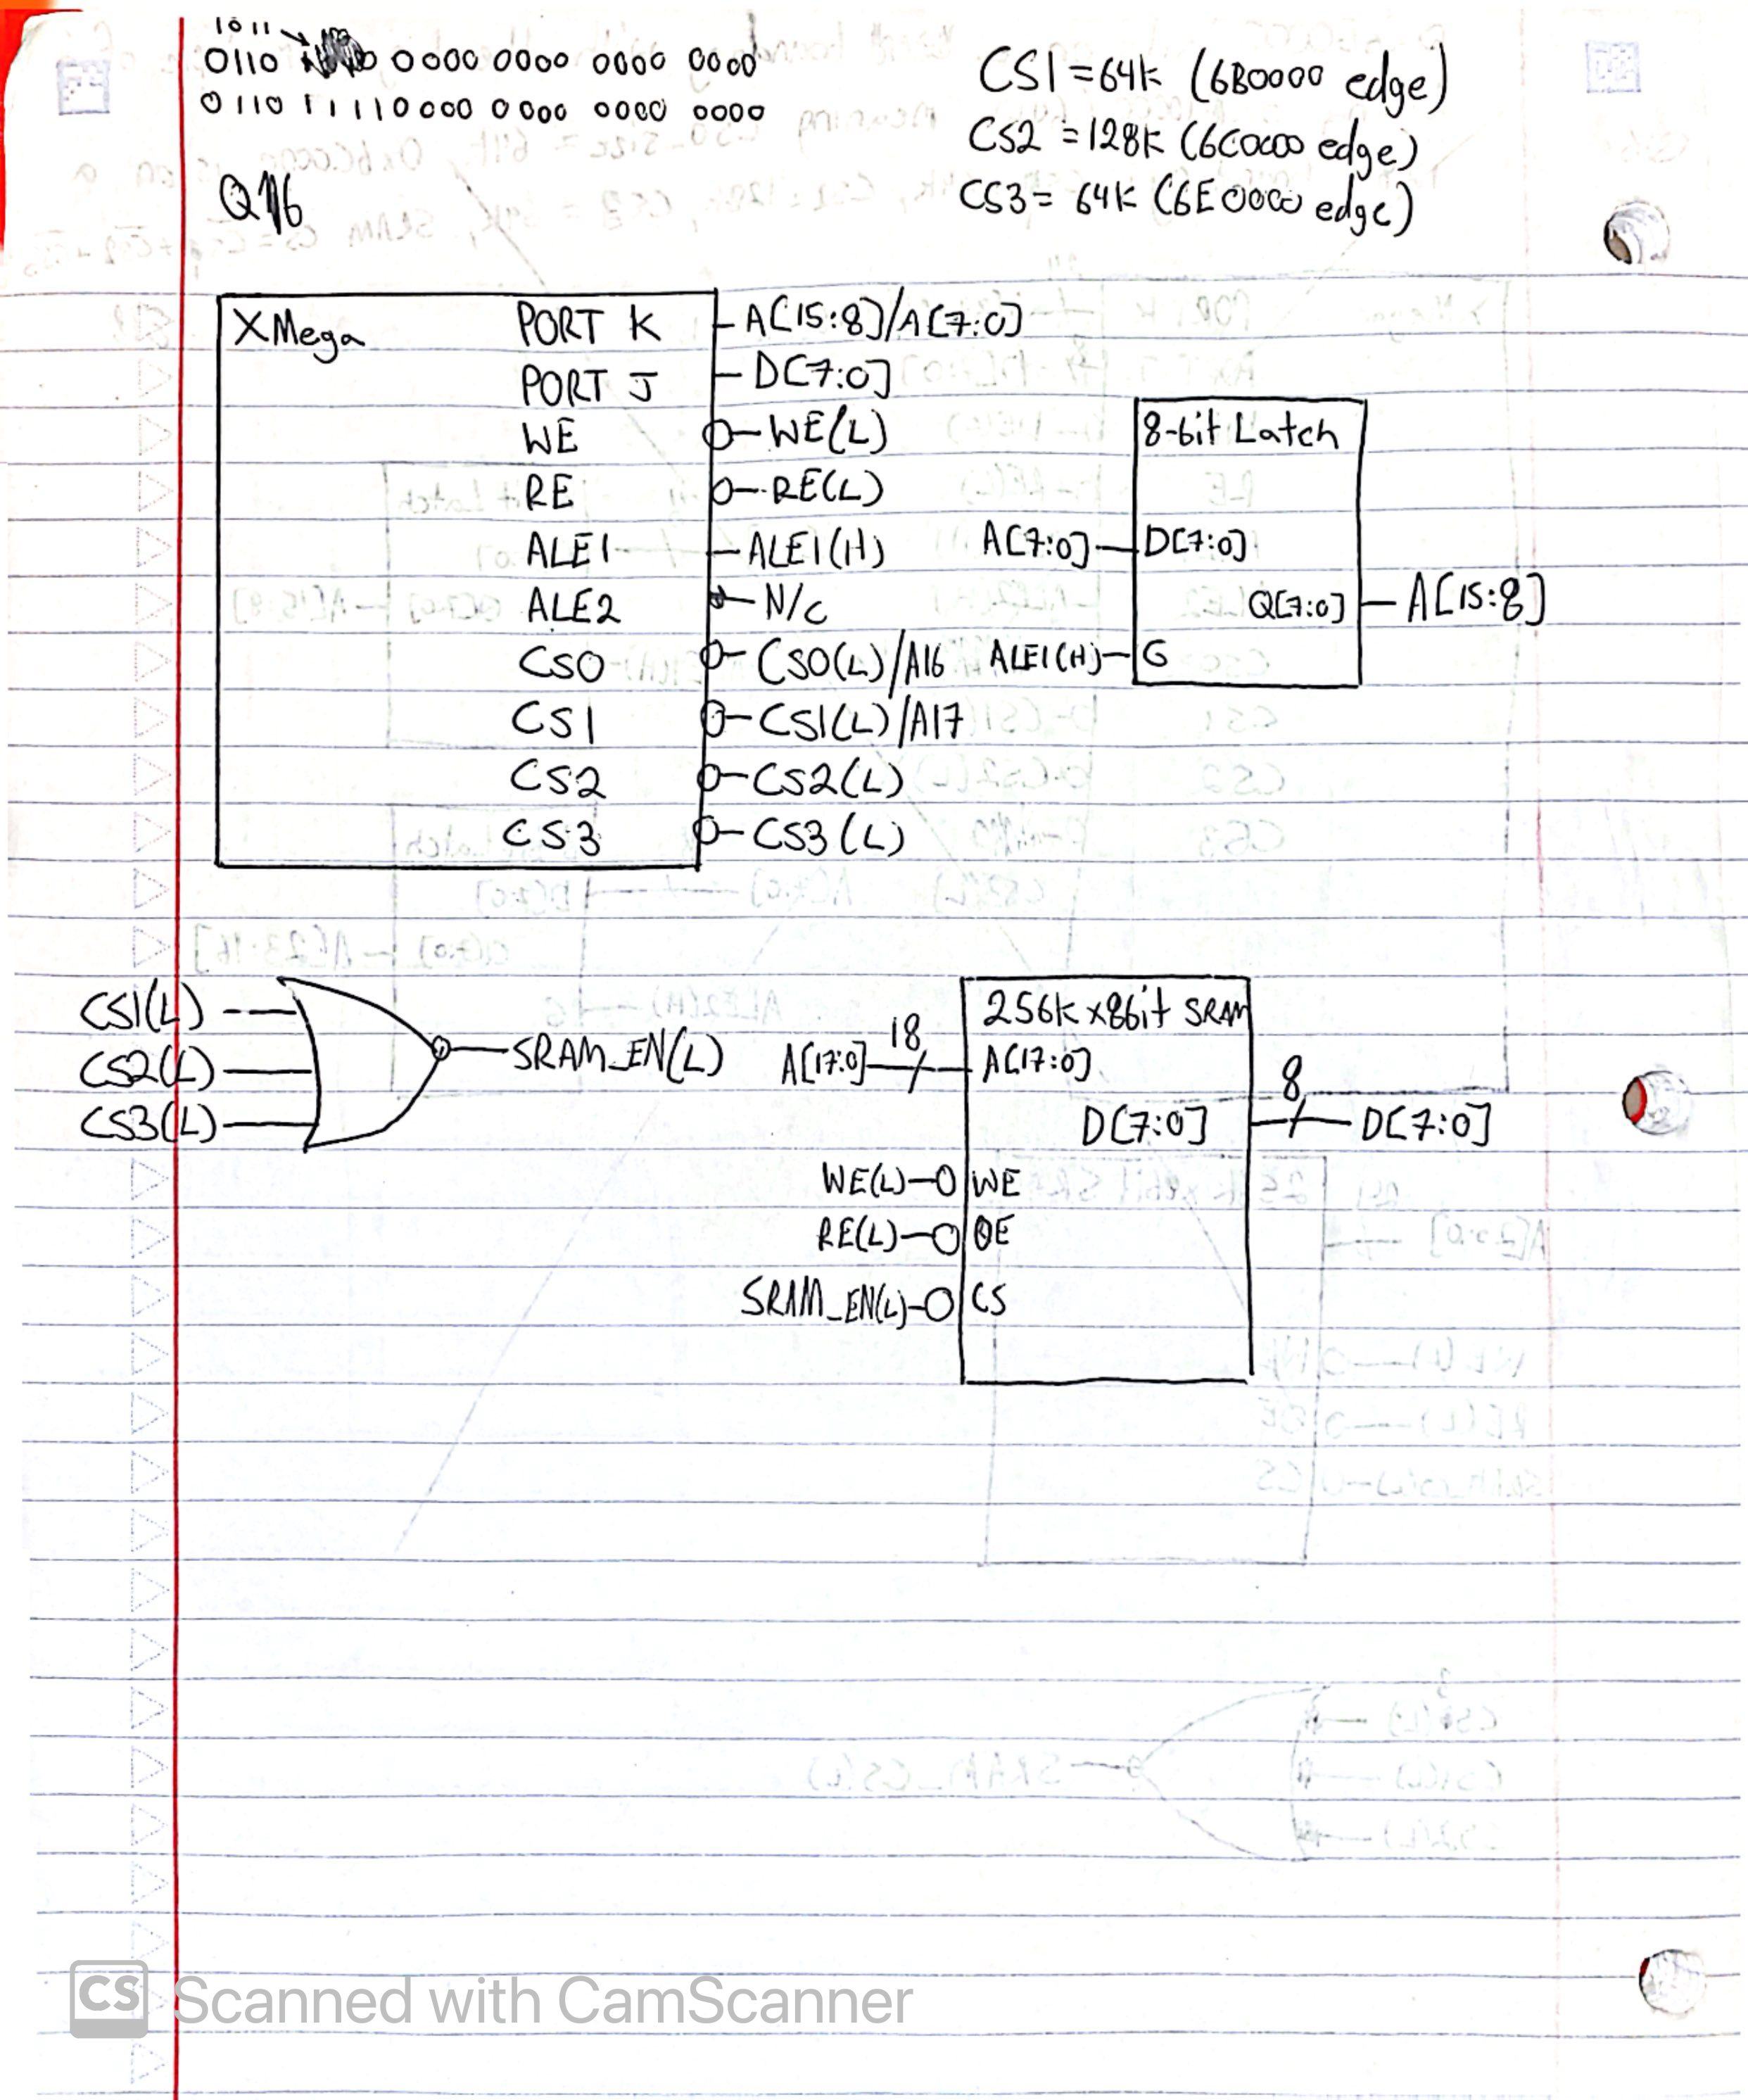 1011
0110 0000 0000 0000 0000
0110 1111 0000 0000 0000 0000
CS1 = 64k (6B0000 edge)
CS2 = 128k (6C0000 edge)
CS3 = 64k (6E0000 edge)
Q16
XMega
PORT K A[15:8]/A[7:0]
PORT J D[7:0]
WE WE(L)
RE RE(L)
ALE1 ALE1(H)
ALE2 N/C
CS0 CS0(L)/A16
CS1 CS1(L)/A17
CS2 CS2(L)
CS3 CS3(L)
8-bit Latch
A[7:0] D[7:0]
Q[7:0] A[15:8]
ALE1(H) G
CS1(L)
CS2(L)
CS3(L)
SRAM_EN(L)
256k x8bit SRAM
18
A[17:0] A[17:0]
8
D[7:0] D[7:0]
WE(L) WE
RE(L) OE
SRAM_EN(L) CS
CS Scanned with CamScanner